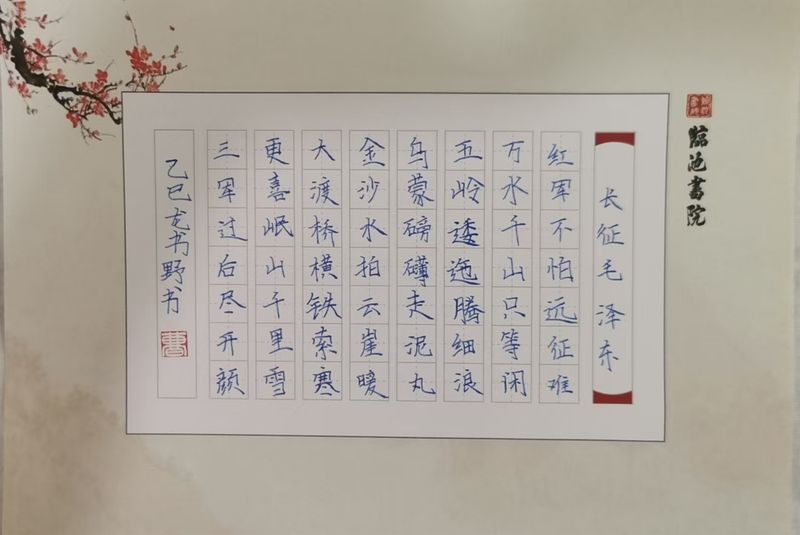 臨池書院
长征毛泽东
红军不怕远征难
万水千山只等闲
五岭逶迤腾细浪
乌蒙磅礴走泥丸
金沙水拍云崖暖
大渡桥横铁索寒
更喜岷山千里雪
三军过后尽开颜
乙巳龙书野书
書